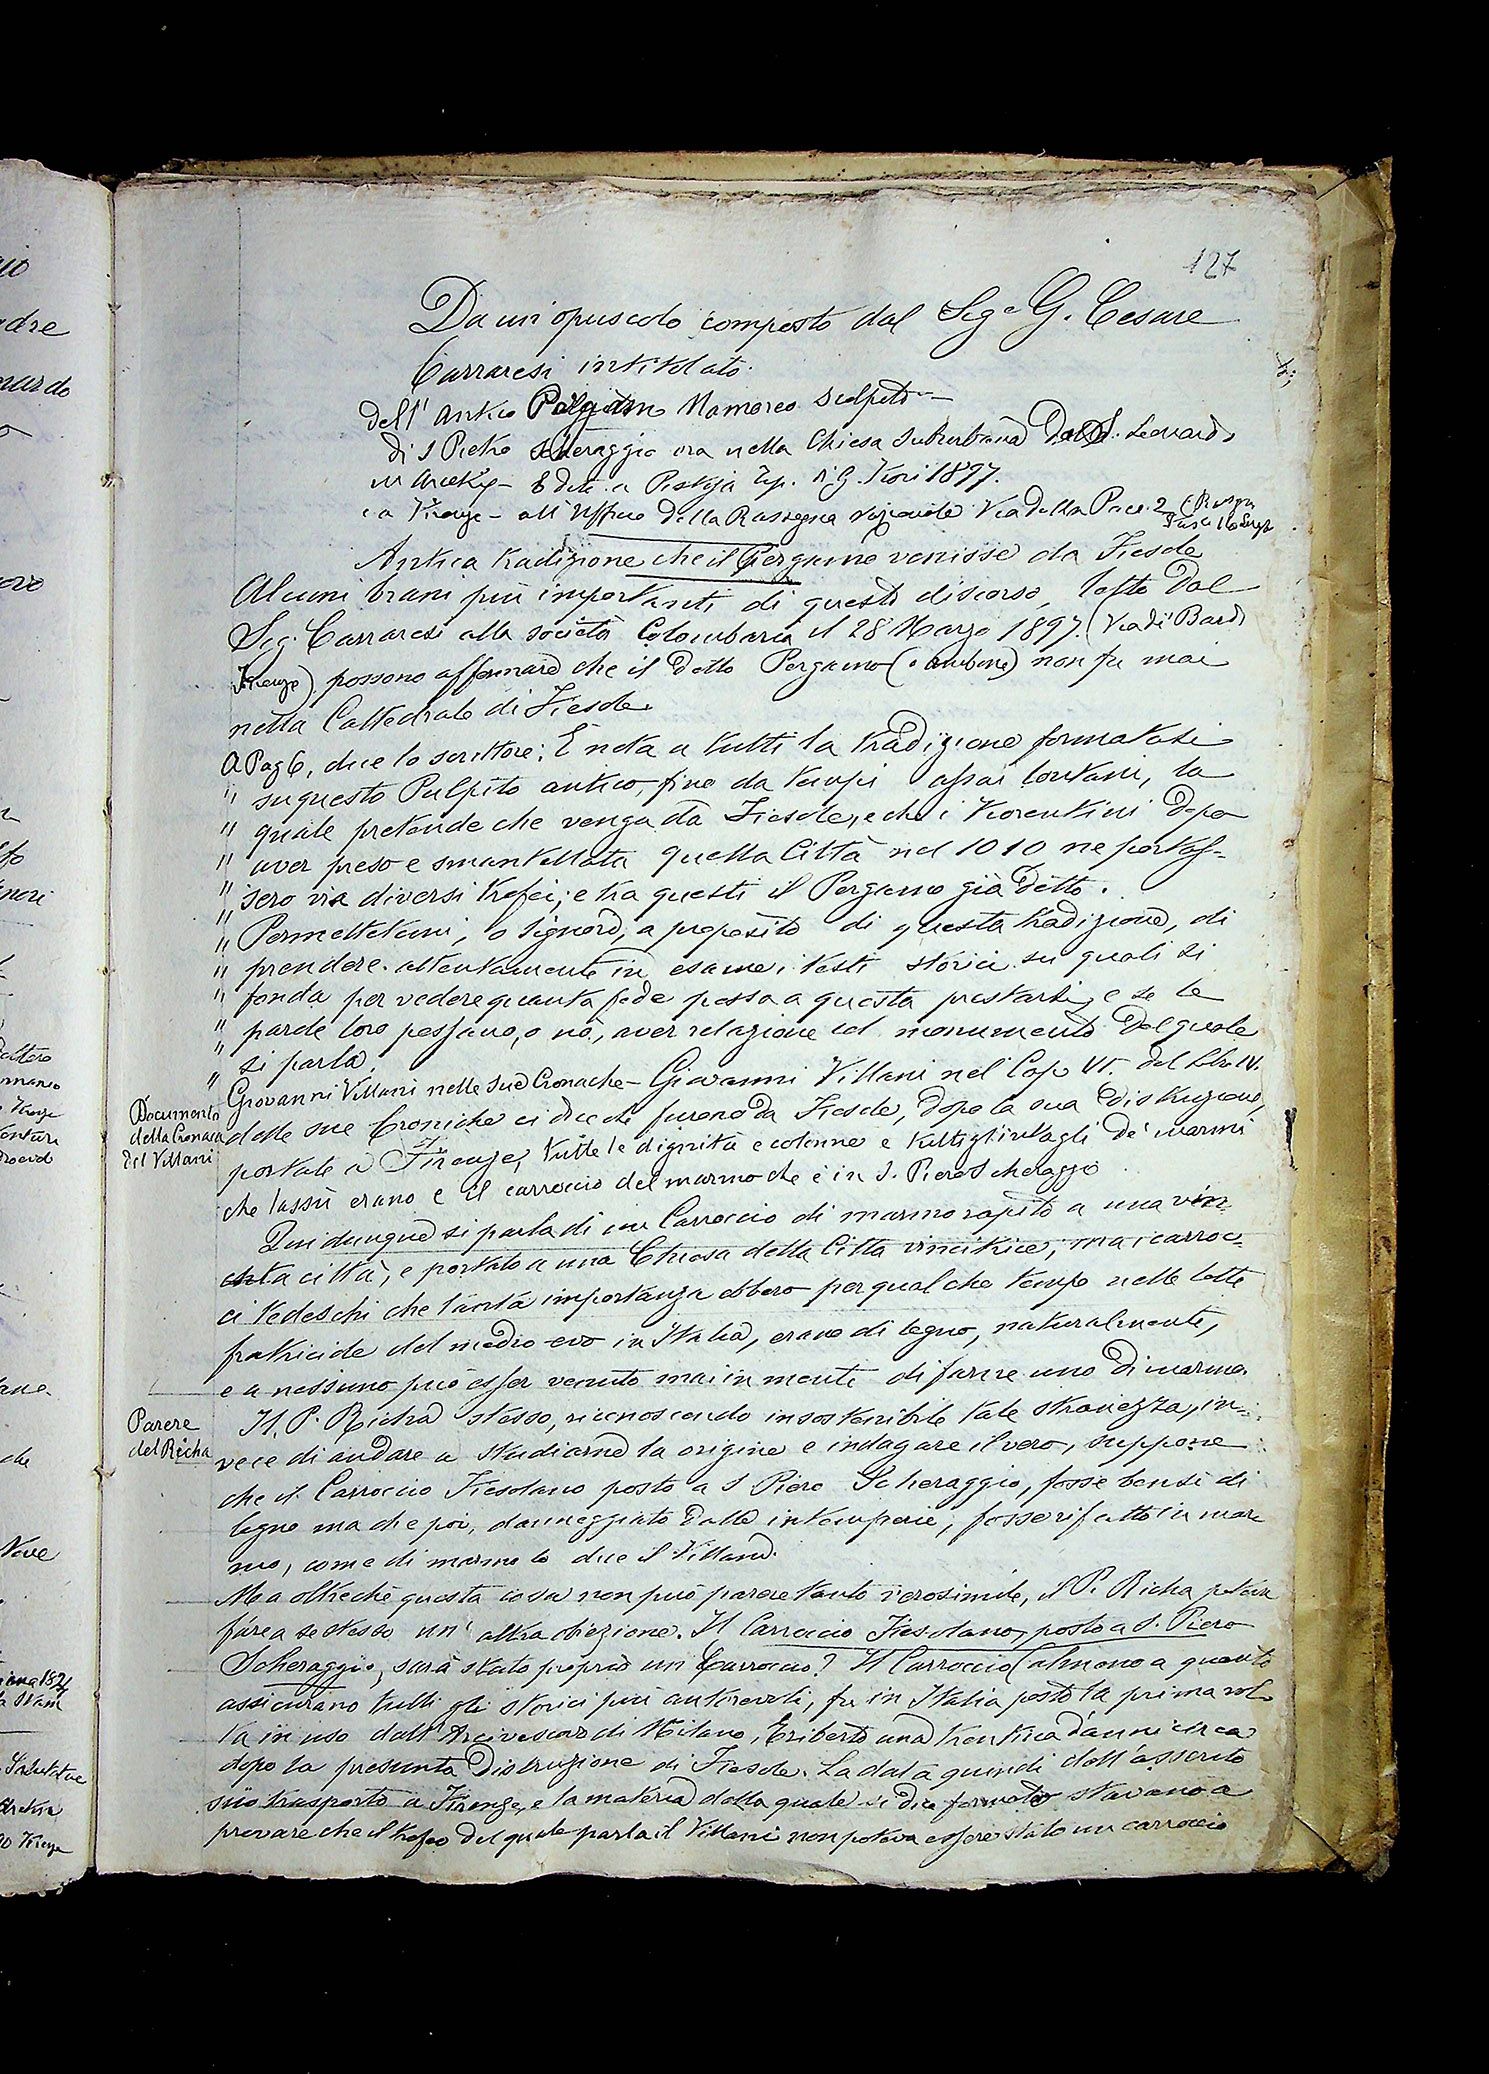 127
Da un' opuscolo composto dal Sigr G. Cesare
Carraresi intitolato.
Dell' antico Pergamo Marmoreo Scolpito
di S Pietro Scheraggio ora nella Chiesa Suburbana Di S. Leonardo
in Arcetri - Edito a Pistoja Tip. di G. Fiori 1897.
e a Firenze - all' Ufficio Della Rassegna Via Della Pace. 2
Antica tradizione che il Pergamo venisse da Fiesole
Alcuni brani più importanti di questo discorso, letto Dal
Sig. Carraresi alla società Colombaria il 28 Marzo 1897. (Via de' Bardi
Firenze) possono affermare che il Detto Pergamo (o ambone) non fu mai
nella Cattedrale di Fiesole.
A Pag 6, dice lo scrittore: È nota a tutti la tradizione formatasi
" su questo Pulpito antico, fino da tempi assai lontani, la
" quale pretende che venga da Fiesole, e che i Fiorentini Dopo
" aver preso e smantellata quella Città nel 1010 ne portas-
" sero via diversi trofei; e tra questi il Pergamo già Detto.
" Permettetemi, o Signori, a proposito di questa tradizione, di
" prendere attentamente in esame i testi storici su quali si
" fonda per vedere quanta fede possa a questa prestarsi, e se le
" parole loro possano, o nò, aver relazione col monumento Del quale
" si parla.
Documento
della Cronaca
del Villani
Giovanni Villani nelle sue Cronache - Giovanni Villani nel Cap VI. del Libro IV.
delle sue Croniche ci dice che furono Da Fiesole, Dopo la sua Distruzione,
portate a Firenze, tutte le dignità e colonne e tutti gl'intagli De' marmi
che lassù erano e il carroccio del marmo che è in S. Piero Scheraggio
Qui dunque si parla di un Carroccio di marmo rapito a una vin-
ta città, e portato a una Chiesa della Città vincitrice; ma i carroc-
ci tedeschi che tanta importanza ebbero per qualche tempo nelle lotte
fratricide del medio-evo in Italia, erano di legno, naturalmente,
e a nessuno può esser venuto mai in mente di farne uno Di marmo.
Parere
del Richa
Il P. Richa stesso, riconoscendo insostenibile tale stranezza, in-
vece di andare a studiarne la origine e indagare il vero, suppone
che il Carroccio Fiesolano posto a S Piero Scheraggio, fosse bensì di
legno ma che poi, danneggiato Dalle intemperie, fosse rifatto in mar
mo, come di marmo lo dice il Villani.
Ma oltrechè questa cosa non può parere tanto verosimile, il P. Richa potea
fare a se stesso un' altra obiezione. Il Carroccio Fiesolano, posto a S. Piero
Scheraggio, sarà stato proprio un Carroccio? Il Carroccio (almeno a quanto
assicurano tutti gli storici più autorevoli, fu in Italia posto la prima vol-
ta in uso dall' Arcivescovo di Milano, Eriberto una trentina d'anni circa
dopo la presunta Distruzione di Fiesole. La data quindi dell'asserito
suo trasporto a Firenze, e la materia dalla quale si dice formato stavano a
provare che il trofeo del quale parla il Villani non poteva essere stato un carroccio